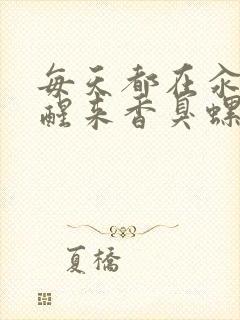 每天都在汆
醒来香臭螺
夏橋